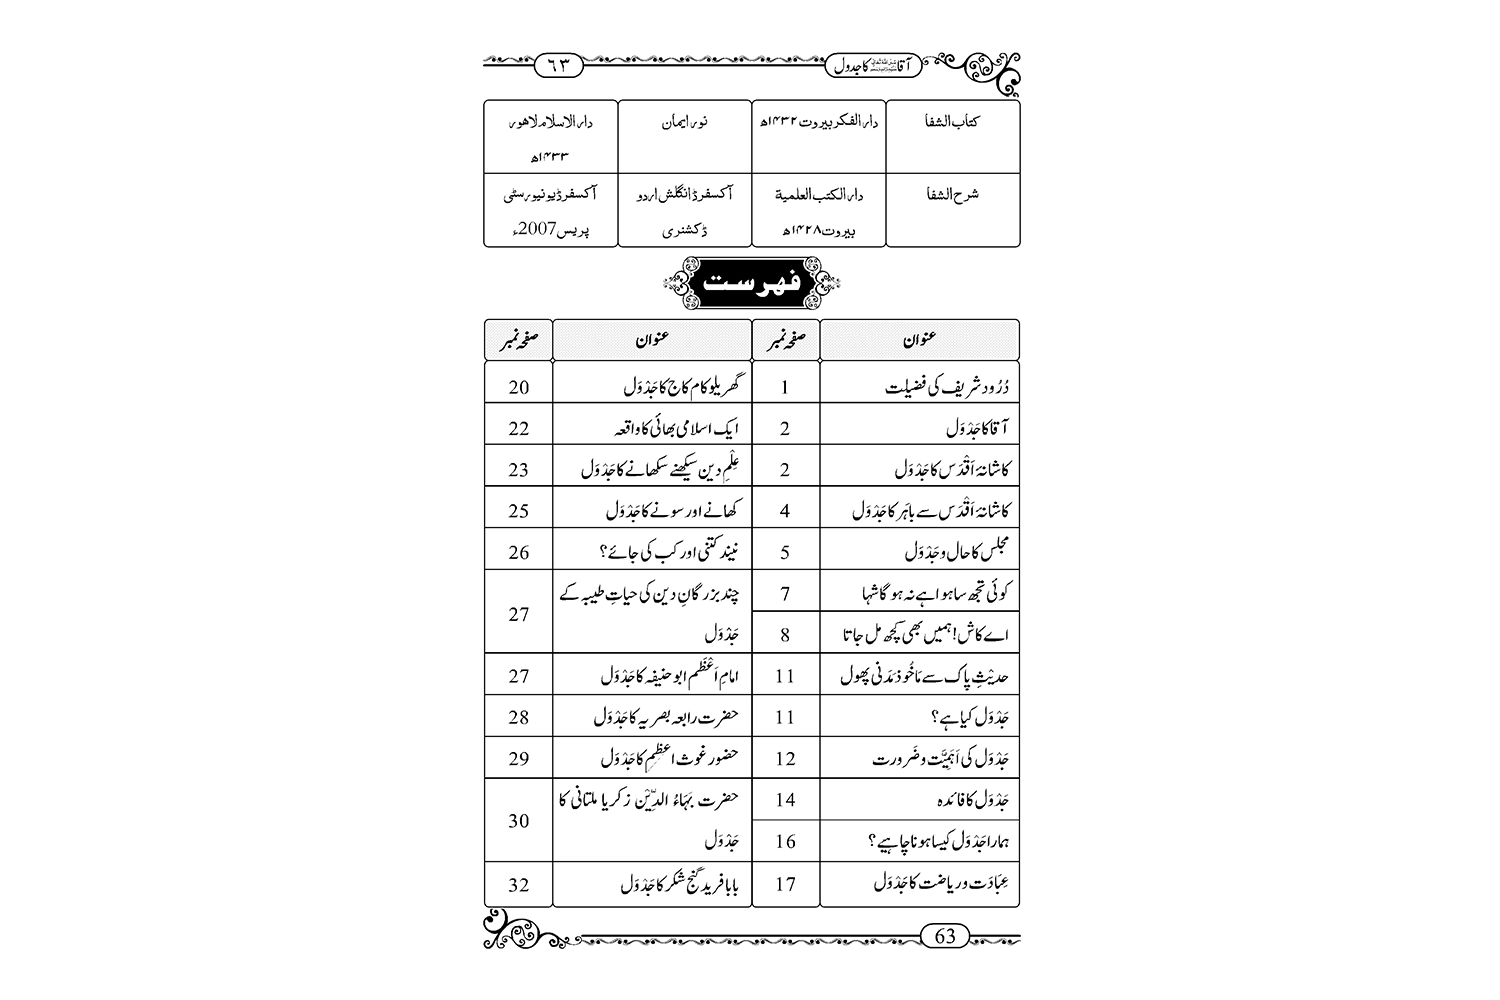 آقا صلی اللہ تعالیٰ علیہ واٰلہ وسلم کا جدول ٦٣
کتاب الشفا دار الفکر بیروت ۱۴۳۲ھ نور ایمان دار الاسلام لاهور
۱۴۳۳ھ
شرح الشفا دار الکتب العلمیة آکسفرڈ انگلش اردو آکسفرڈ یونیورسٹی
بیروت ۱۴۲۸ھ ڈکشنری پریس 2007ء
فهرست
عنوان صفحہ نمبر عنوان صفحہ نمبر
دُرُود شریف کی فضیلت 1 گھریلو کام کاج کا جَدْوَل 20
آقا کا جَدْوَل 2 ایک اسلامی بھائی کا واقعہ 22
کاشانۂ اَقْدَس کا جَدْوَل 2 عِلْمِ دین سیکھنے سکھانے کا جَدْوَل 23
کاشانۂ اَقْدَس سے باہَر کا جَدْوَل 4 کھانے اور سونے کا جَدْوَل 25
مجلس کا حال و جَدْوَل 5 نیند کتنی اور کب کی جائے؟ 26
کوئی تجھ سا ہوا ہے نہ ہو گا شہا 7 چند بزرگانِ دین کی حیاتِ طیبہ کے 27
اے کاش! ہمیں بھی کچھ مل جاتا 8 جَدْوَل
حدیثِ پاک سے مَاخُوذ مَدَنی پھول 11 امامِ اَعْظَم ابو حنیفہ کا جَدْوَل 27
جَدْوَل کیا ہے؟ 11 حضرت رابعہ بصریہ کا جَدْوَل 28
جَدْوَل کی اَہَمِیَّت و ضَرورت 12 حضور غوث اعظم کا جَدْوَل 29
جَدْوَل کا فائدہ 14 حضرت بہَاءُ الدِّیْن زکریا ملتانی کا 30
ہمارا جَدْوَل کیسا ہونا چاہیے؟ 16 جَدْوَل
عِبَادَت و ریاضت کا جَدْوَل 17 بابا فرید گنج شکر کا جَدْوَل 32
63